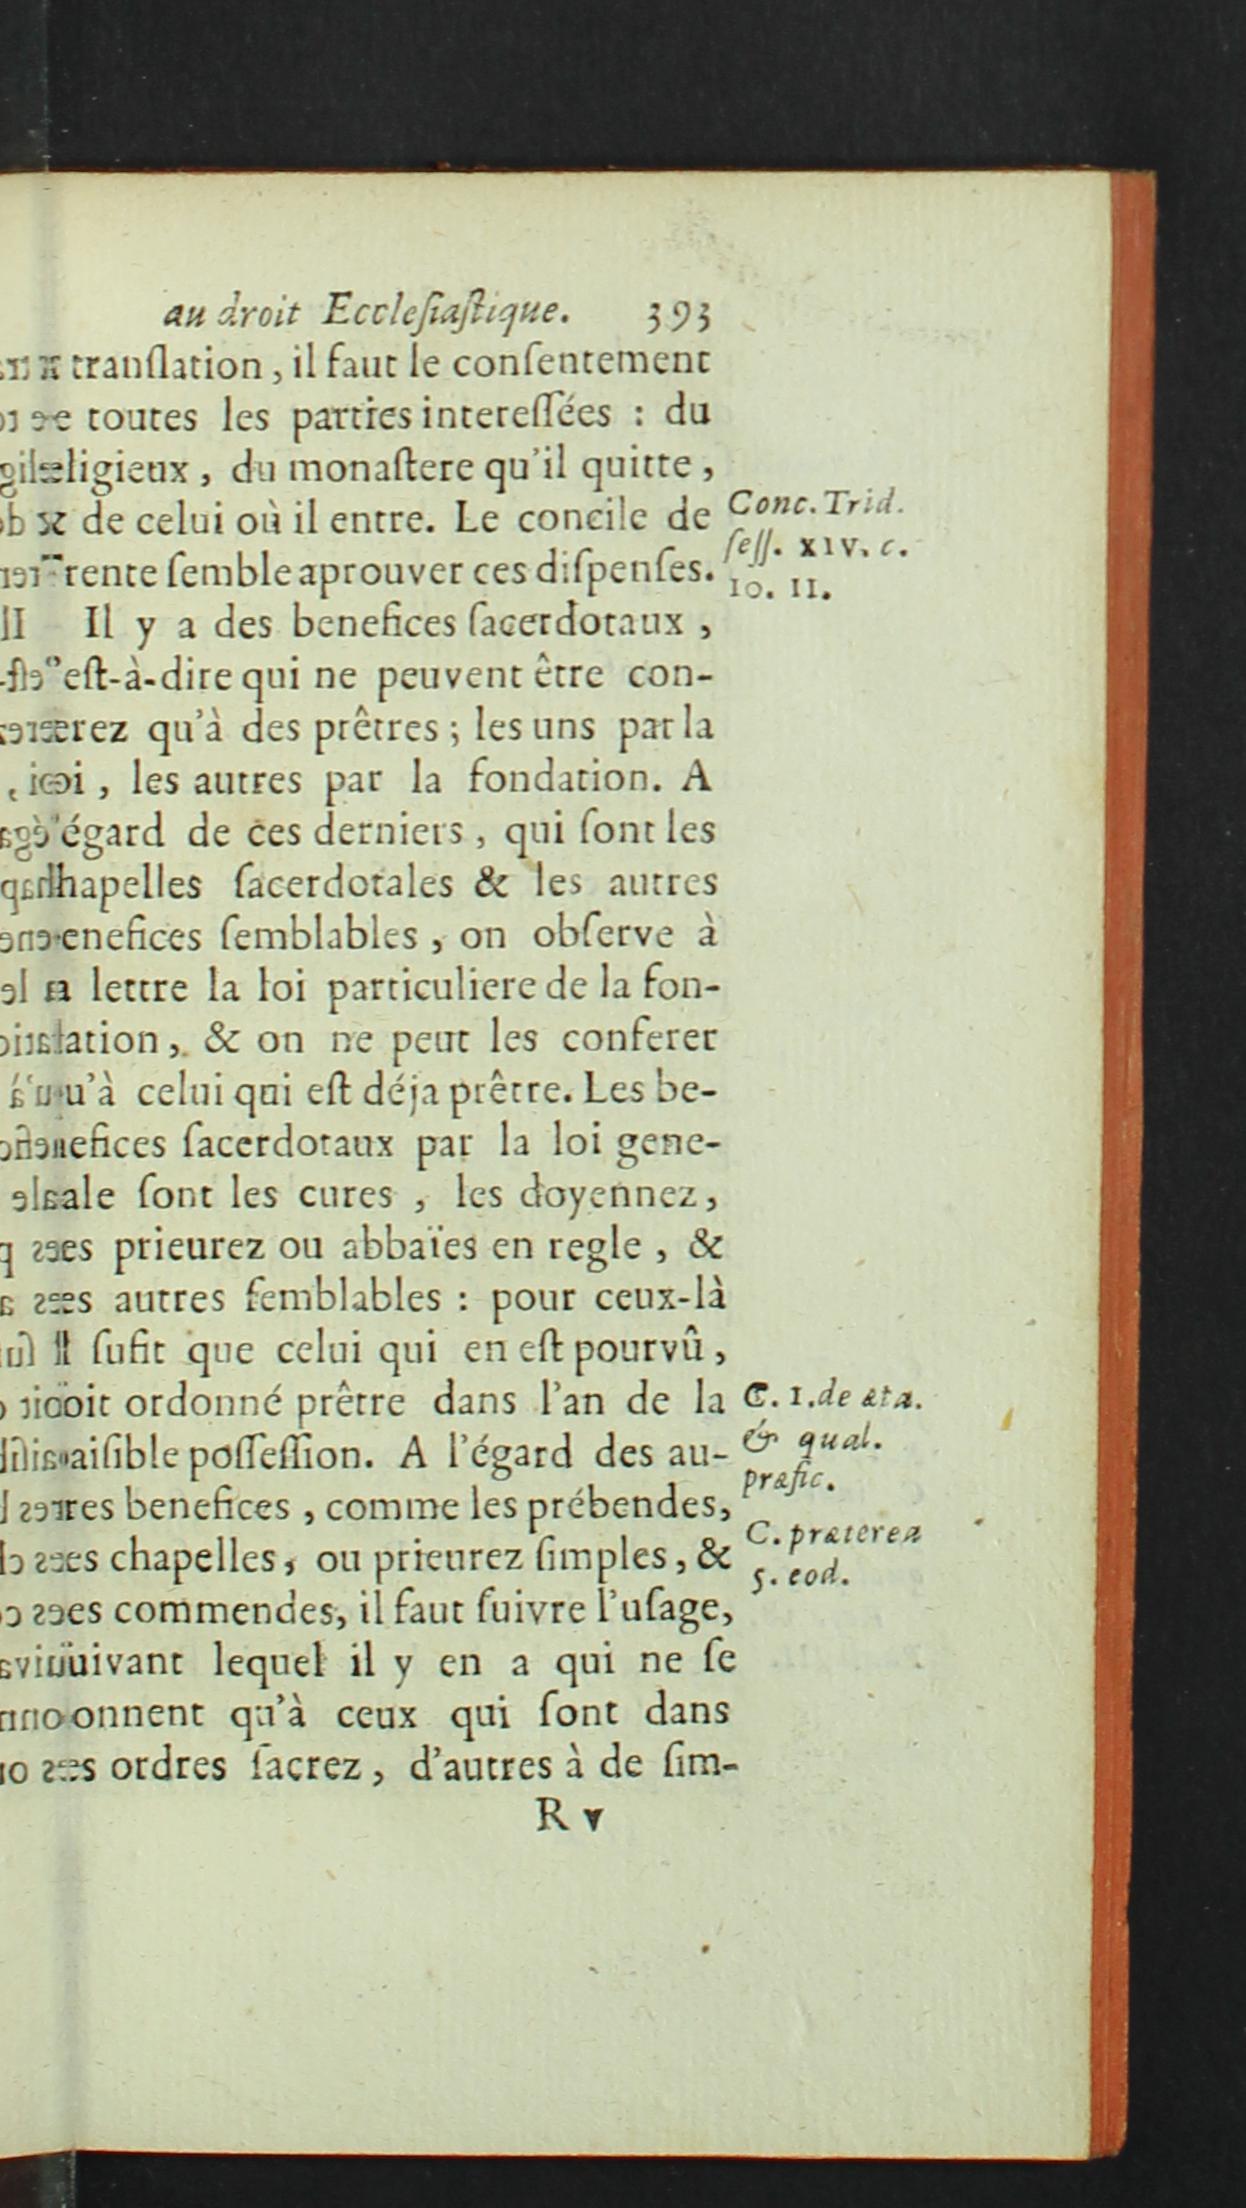 au droit Eccleſiaſtique. 393
tranſlation, il faut le conſentement
toutes les parties intereſſées : du
ligieux, du monaſtere qu'il quitte,
de celui où il entre. Le concile de
Conc. Trid.
ſeſſ. XIV. c.
10. 11.
rente ſemble aprouver ces diſpenſes.
Il y a des benefices ſacerdotaux,
eſt-à-dire qui ne peuvent être con-
rez qu'à des prêtres ; les uns par la
les autres par la fondation. A
égard de ces derniers, qui ſont les
hapelles ſacerdotales & les autres
enefices ſemblables, on obſerve à
lettre la loi particuliere de la fon-
ation, & on ne peut les conferer
u'à celui qui eſt déja prêtre. Les be-
nefices ſacerdotaux par la loi gene-
ale ſont les cures, les doyennez,
es prieurez ou abbaïes en regle, &
s autres ſemblables : pour ceux-là
ſufit que celui qui en eſt pourvû,
oit ordonné prêtre dans l'an de la
C. 1. de æta.
& qual.
præfic.
aiſible poſſeſſion. A l'égard des au-
res benefices, comme les prébendes,
C. præterea
5. eod.
es chapelles, ou prieurez ſimples, &
es commendes, il faut ſuivre l'uſage,
uivant lequel il y en a qui ne ſe
onnent qu'à ceux qui ſont dans
s ordres ſacrez, d'autres à de ſim-
R v